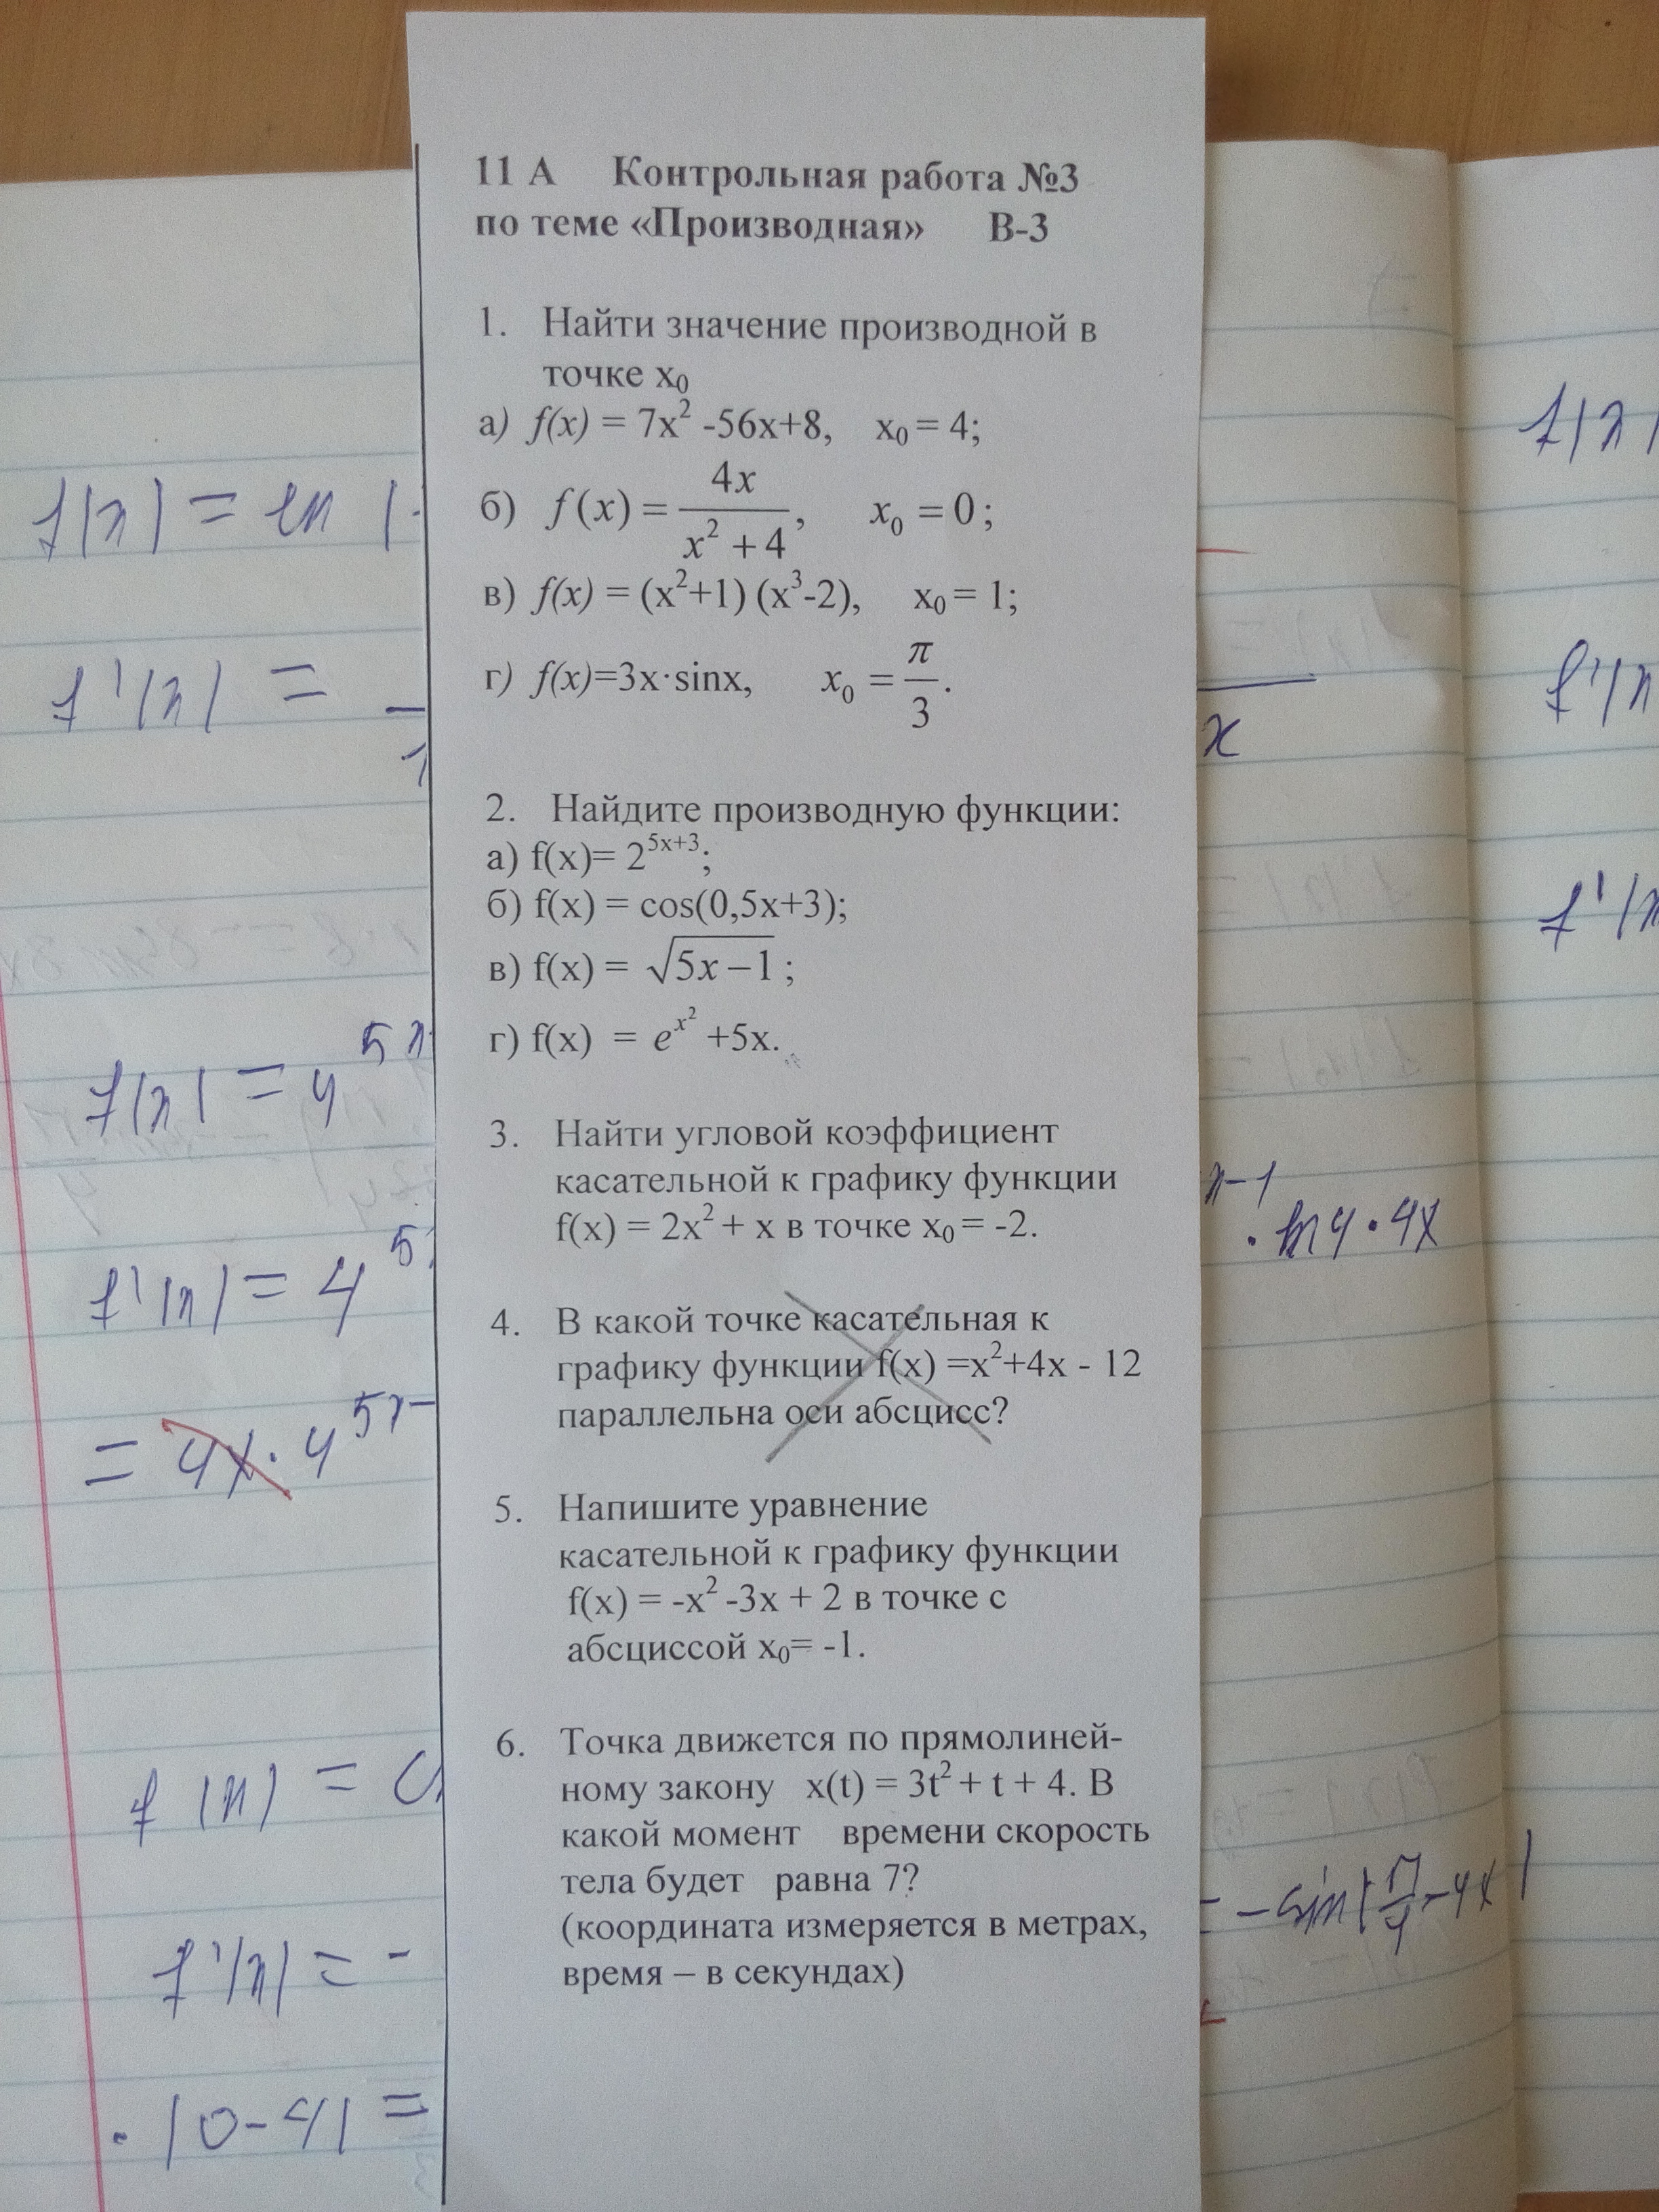 11 А Контрольная работа №3
по теме «Производная» В-3
1. Найти значение производной в
точке x₀
а) f(x) = 7x² -56x+8, x₀ = 4;
б) f(x) = 4x / (x² + 4), x₀ = 0;
в) f(x) = (x²+1) (x³-2), x₀ = 1;
г) f(x)=3x·sinx, x₀ = π/3.
2. Найдите производную функции:
а) f(x)= 2^(5x+3);
б) f(x) = cos(0,5x+3);
в) f(x) = √(5x−1) ;
г) f(x) = e^(x²) +5x.
3. Найти угловой коэффициент
касательной к графику функции
f(x) = 2x² + x в точке x₀ = -2.
4. В какой точке касательная к
графику функции f(x) =x²+4x - 12
параллельна оси абсцисс?
5. Напишите уравнение
касательной к графику функции
f(x) = -x² -3x + 2 в точке с
абсциссой x₀= -1.
6. Точка движется по прямолиней-
ному закону x(t) = 3t² + t + 4. В
какой момент времени скорость
тела будет равна 7?
(координата измеряется в метрах,
время – в секундах)
f(x) = ln
f'(x) =
f(x) = 4^5x
f'(x) = 4^5
= 4x · 4^5x-
f(x) =
f'(x) = -
· (0-4) =
x
x-1 · ln4 · 4x
= -sin(π/4 - 4x)
f(x)
f'(x
f'(x